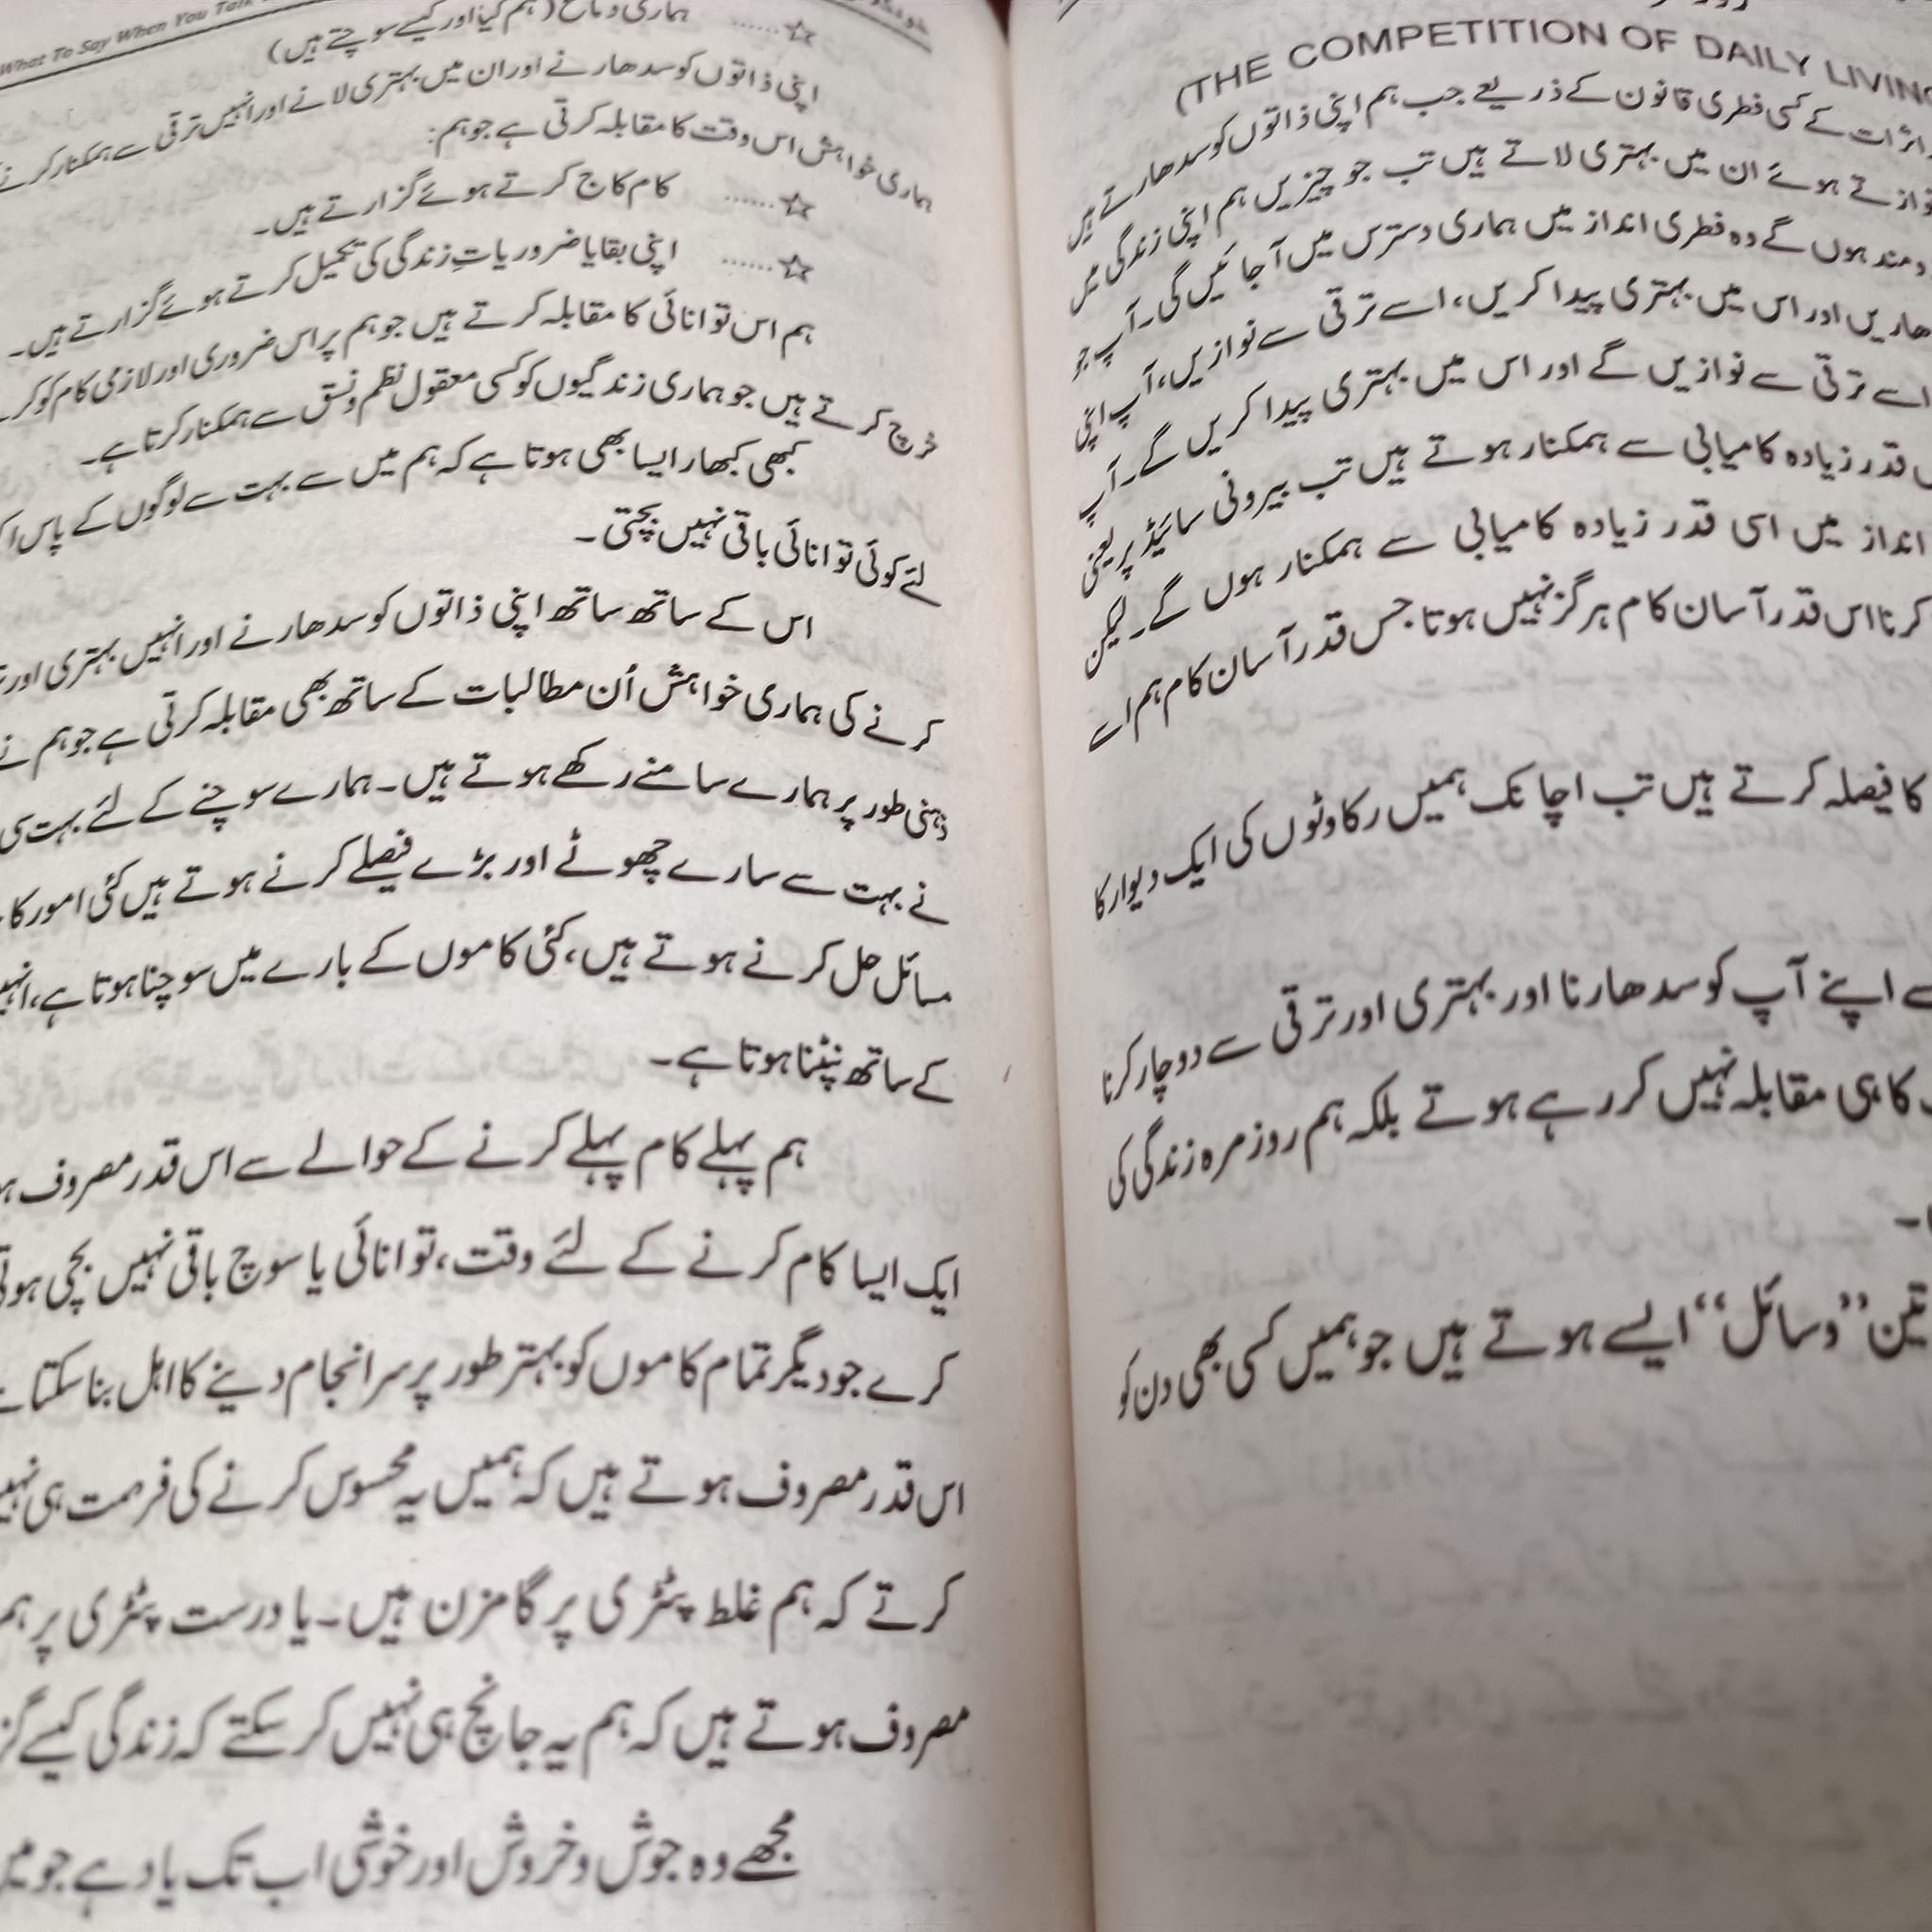 (THE COMPETITION OF DAILY LIVING
اثرات کے کسی فطری قانون کے ذریعے جب ہم اپنی ذاتوں کو سدھارتے ہیں
نوازتے ہوئے ان میں بہتری لاتے ہیں تب جو چیزیں ہم اپنی زندگی میں
مند ہوں گے وہ فطری انداز میں ہماری دسترس میں آ جائیں گی۔ آپ جو
اور اس میں بہتری پیدا کریں، اسے ترقی سے نوازیں، آپ اپنی
اسے ترقی سے نوازیں گے اور اس میں بہتری پیدا کریں گے۔ آپ
قدر زیادہ کامیابی سے ہمکنار ہوتے ہیں تب بیرونی سائیڈ پر یعنی
انداز میں اسی قدر زیادہ کامیابی سے ہمکنار ہوں گے۔ لیکن
کرنا اس قدر آسان کام ہرگز نہیں ہوتا جس قدر آسان کام ہم اسے
کا فیصلہ کرتے ہیں تب اچانک ہمیں رکاوٹوں کی ایک دیوار کا
اپنے آپ کو سدھارنا اور بہتری اور ترقی سے دوچار کرنا
کا ہی مقابلہ نہیں کر رہے ہوتے بلکہ ہم روزمرہ زندگی کی
تین ’’وسائل‘‘ ایسے ہوتے ہیں جو ہمیں کسی بھی دن کو
What To Say When You Talk
☆...... ہماری دماغ (ہم کیا اور کیسے سوچتے ہیں)
اپنی ذاتوں کو سدھارنے اور ان میں بہتری لانے اور انہیں ترقی سے ہمکنار کرنے
ہماری خواہش اس وقت کا مقابلہ کرتی ہے جو ہم:
☆...... کام کاج کرتے ہوئے گزارتے ہیں۔
☆...... اپنی بقایا ضروریاتِ زندگی کی تکمیل کرتے ہوئے گزارتے ہیں۔
ہم اس توانائی کا مقابلہ کرتے ہیں جو ہم پر اس ضروری اور لازمی کام کو
خرچ کرتے ہیں جو ہماری زندگیوں کو کسی معقول نظم و نسق سے ہمکنار کرتا ہے۔
کبھی کبھار ایسا بھی ہوتا ہے کہ ہم میں سے بہت سے لوگوں کے پاس
لئے کوئی توانائی باقی نہیں بچتی۔
اس کے ساتھ ساتھ اپنی ذاتوں کو سدھارنے اور انہیں بہتری اور
کرنے کی ہماری خواہش اُن مطالبات کے ساتھ بھی مقابلہ کرتی ہے جو ہم نے
ذہنی طور پر ہمارے سامنے رکھے ہوتے ہیں۔ ہمارے سوچنے کے لئے بہت سی
نے بہت سے سارے چھوٹے اور بڑے فیصلے کرنے ہوتے ہیں کئی امور کا
مسائل حل کرنے ہوتے ہیں، کئی کاموں کے بارے میں سوچنا ہوتا ہے،
کے ساتھ نپٹنا ہوتا ہے۔
ہم پہلے کام پہلے کرنے کے حوالے سے اس قدر مصروف
ایک ایسا کام کرنے کے لئے وقت، توانائی یا سوچ باقی نہیں بچی ہوتی
کرے جو دیگر تمام کاموں کو بہتر طور پر سرانجام دینے کا اہل بنا سکتا
اس قدر مصروف ہوتے ہیں کہ ہمیں یہ محسوس کرنے کی فرصت ہی
کرتے کہ ہم غلط پٹڑی پر گامزن ہیں۔ یا درست پٹڑی پر ہم
مصروف ہوتے ہیں کہ ہم یہ جانچ ہی نہیں کر سکتے کہ زندگی کیسے
مجھے وہ جوش و خروش اور خوشی اب تک یاد ہے جو